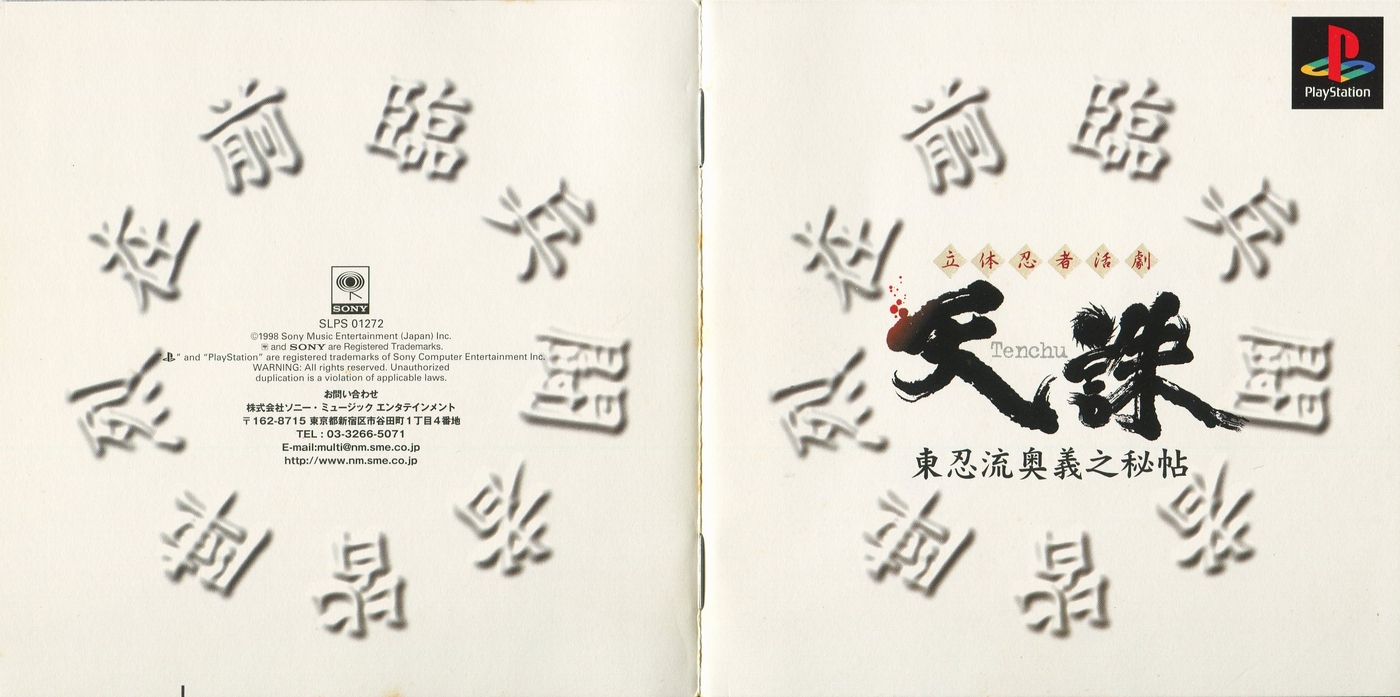 臨
兵
闘
者
皆
陣
列
在
前
SONY
SLPS 01272
©1998 Sony Music Entertainment (Japan) Inc.
and SONY are Registered Trademarks.
" and "PlayStation" are registered trademarks of Sony Computer Entertainment Inc.
WARNING: All rights reserved. Unauthorized
duplication is a violation of applicable laws.
お問い合わせ
株式会社ソニー・ミュージック エンタテインメント
〒162-8715 東京都新宿区市谷田町1丁目4番地
TEL : 03-3266-5071
E-mail:multi@nm.sme.co.jp
http://www.nm.sme.co.jp
PlayStation
臨
兵
闘
者
皆
陣
列
在
前
立体忍者活劇
天誅
Tenchu
東忍流奥義之秘帖